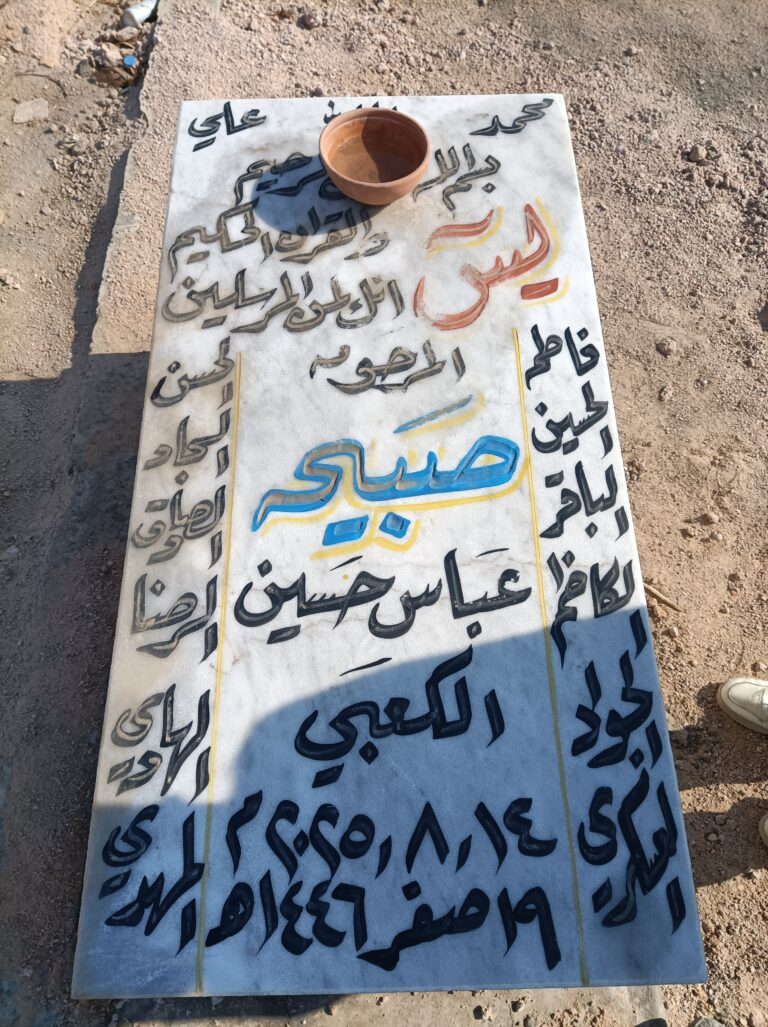 محمد علي
بسم الله الرحيم
يس والقرآن الحكيم
انك لمن المرسلين
المرحومه
صبيحه
عباس حسين
الكعبي
١٤ ، ٨ ، ٢٠٢٥ م
١٩ صفر ١٤٤٦ هـ
فاطم
الحسين
الباقر
الكاظم
الجواد
العسكري
الحسن
السجاد
الصادق
الرضا
الهادي
المهدي